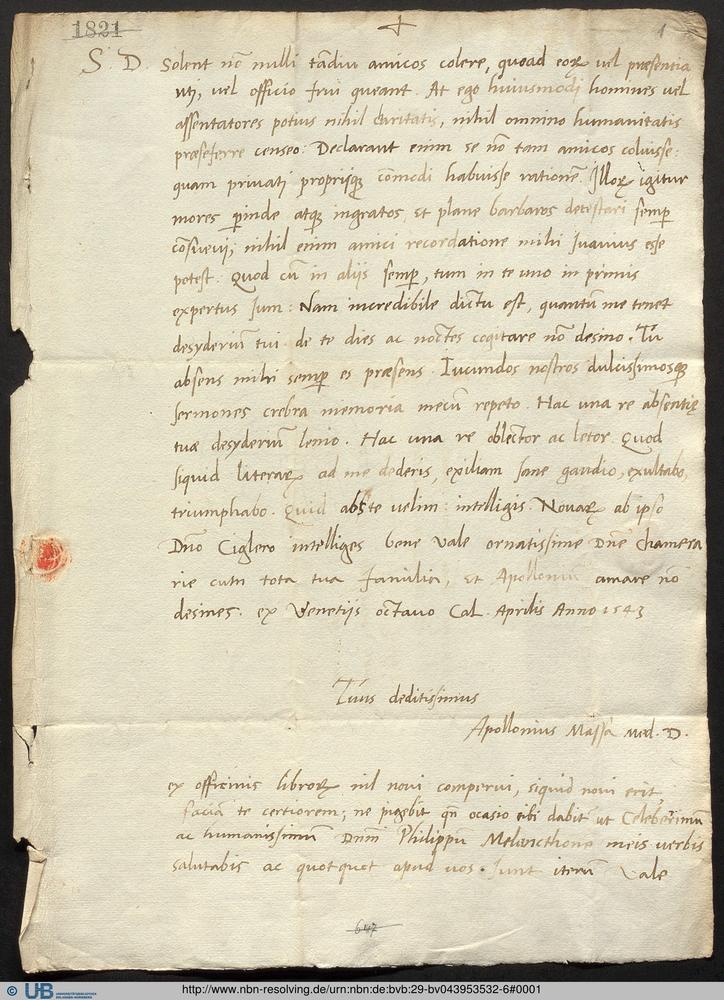 1821
1
S. D. Solent nō nulli tādiu amicos colere, quoad eoꝝ vel præsentia
uti, vel officio frui queant. At ego huiusmodi homines vel
assentatores potius nihil charitatis, nihil omnino humanitatis
præseferre censeo: Declarant enim se nō tam amicos coluisse:
quam privati propriiqꝫ cōmodi habuisse rationē. Illoꝝ igitur
mores ꝑinde atqꝫ ingratos, et plane barbaros detestari semꝑ
cōsuevi, nihil enim amici recordatione mihi suavius esse
potest. Quod cū in aliis semꝑ, tum in te uno in primis
expertus sum: Nam incredibile dictu est, quantū me tenet
desyderiū tui. de te dies ac noctes cogitare nō desino. Tu
absens mihi semꝑ es præsens. Iucundos nostros dulcissimosqꝫ
sermones crebra memoria mecū repeto. Hac una re absentię
tuæ desyderiū lenio. Hac una re oblector ac letor. Quod
siquid literaꝝ ad me dederis, exiliam sane gaudio, exultabo,
triumphabo. Quid abs te velim: intelligis. Novaꝝ ab ipso
Dño Ciglero intelliges bene vale ornatissime Dñe Chamera
rie cum tota tua familia, et Apolloniū amare nō
desines. ex Venetijs octavo Cal. Aprilis Anno 1543
Tuus deditissimus
Apollonius Massa Med. D.
ex officinis libroꝝ nil novi comperui, siquid novi erit
faciā te certiorem; ne pigebit qn̄ ocasio tibi dabit̄ ut Celeberimū
ac humanissimū Dnm̄ Philippū Melancthonē meis verbis
salutabis ac quotquot apud vos sunt iterū Vale
647
© UB http://www.nbn-resolving.de/urn:nbn:de:bvb:29-bv043953532-6#0001